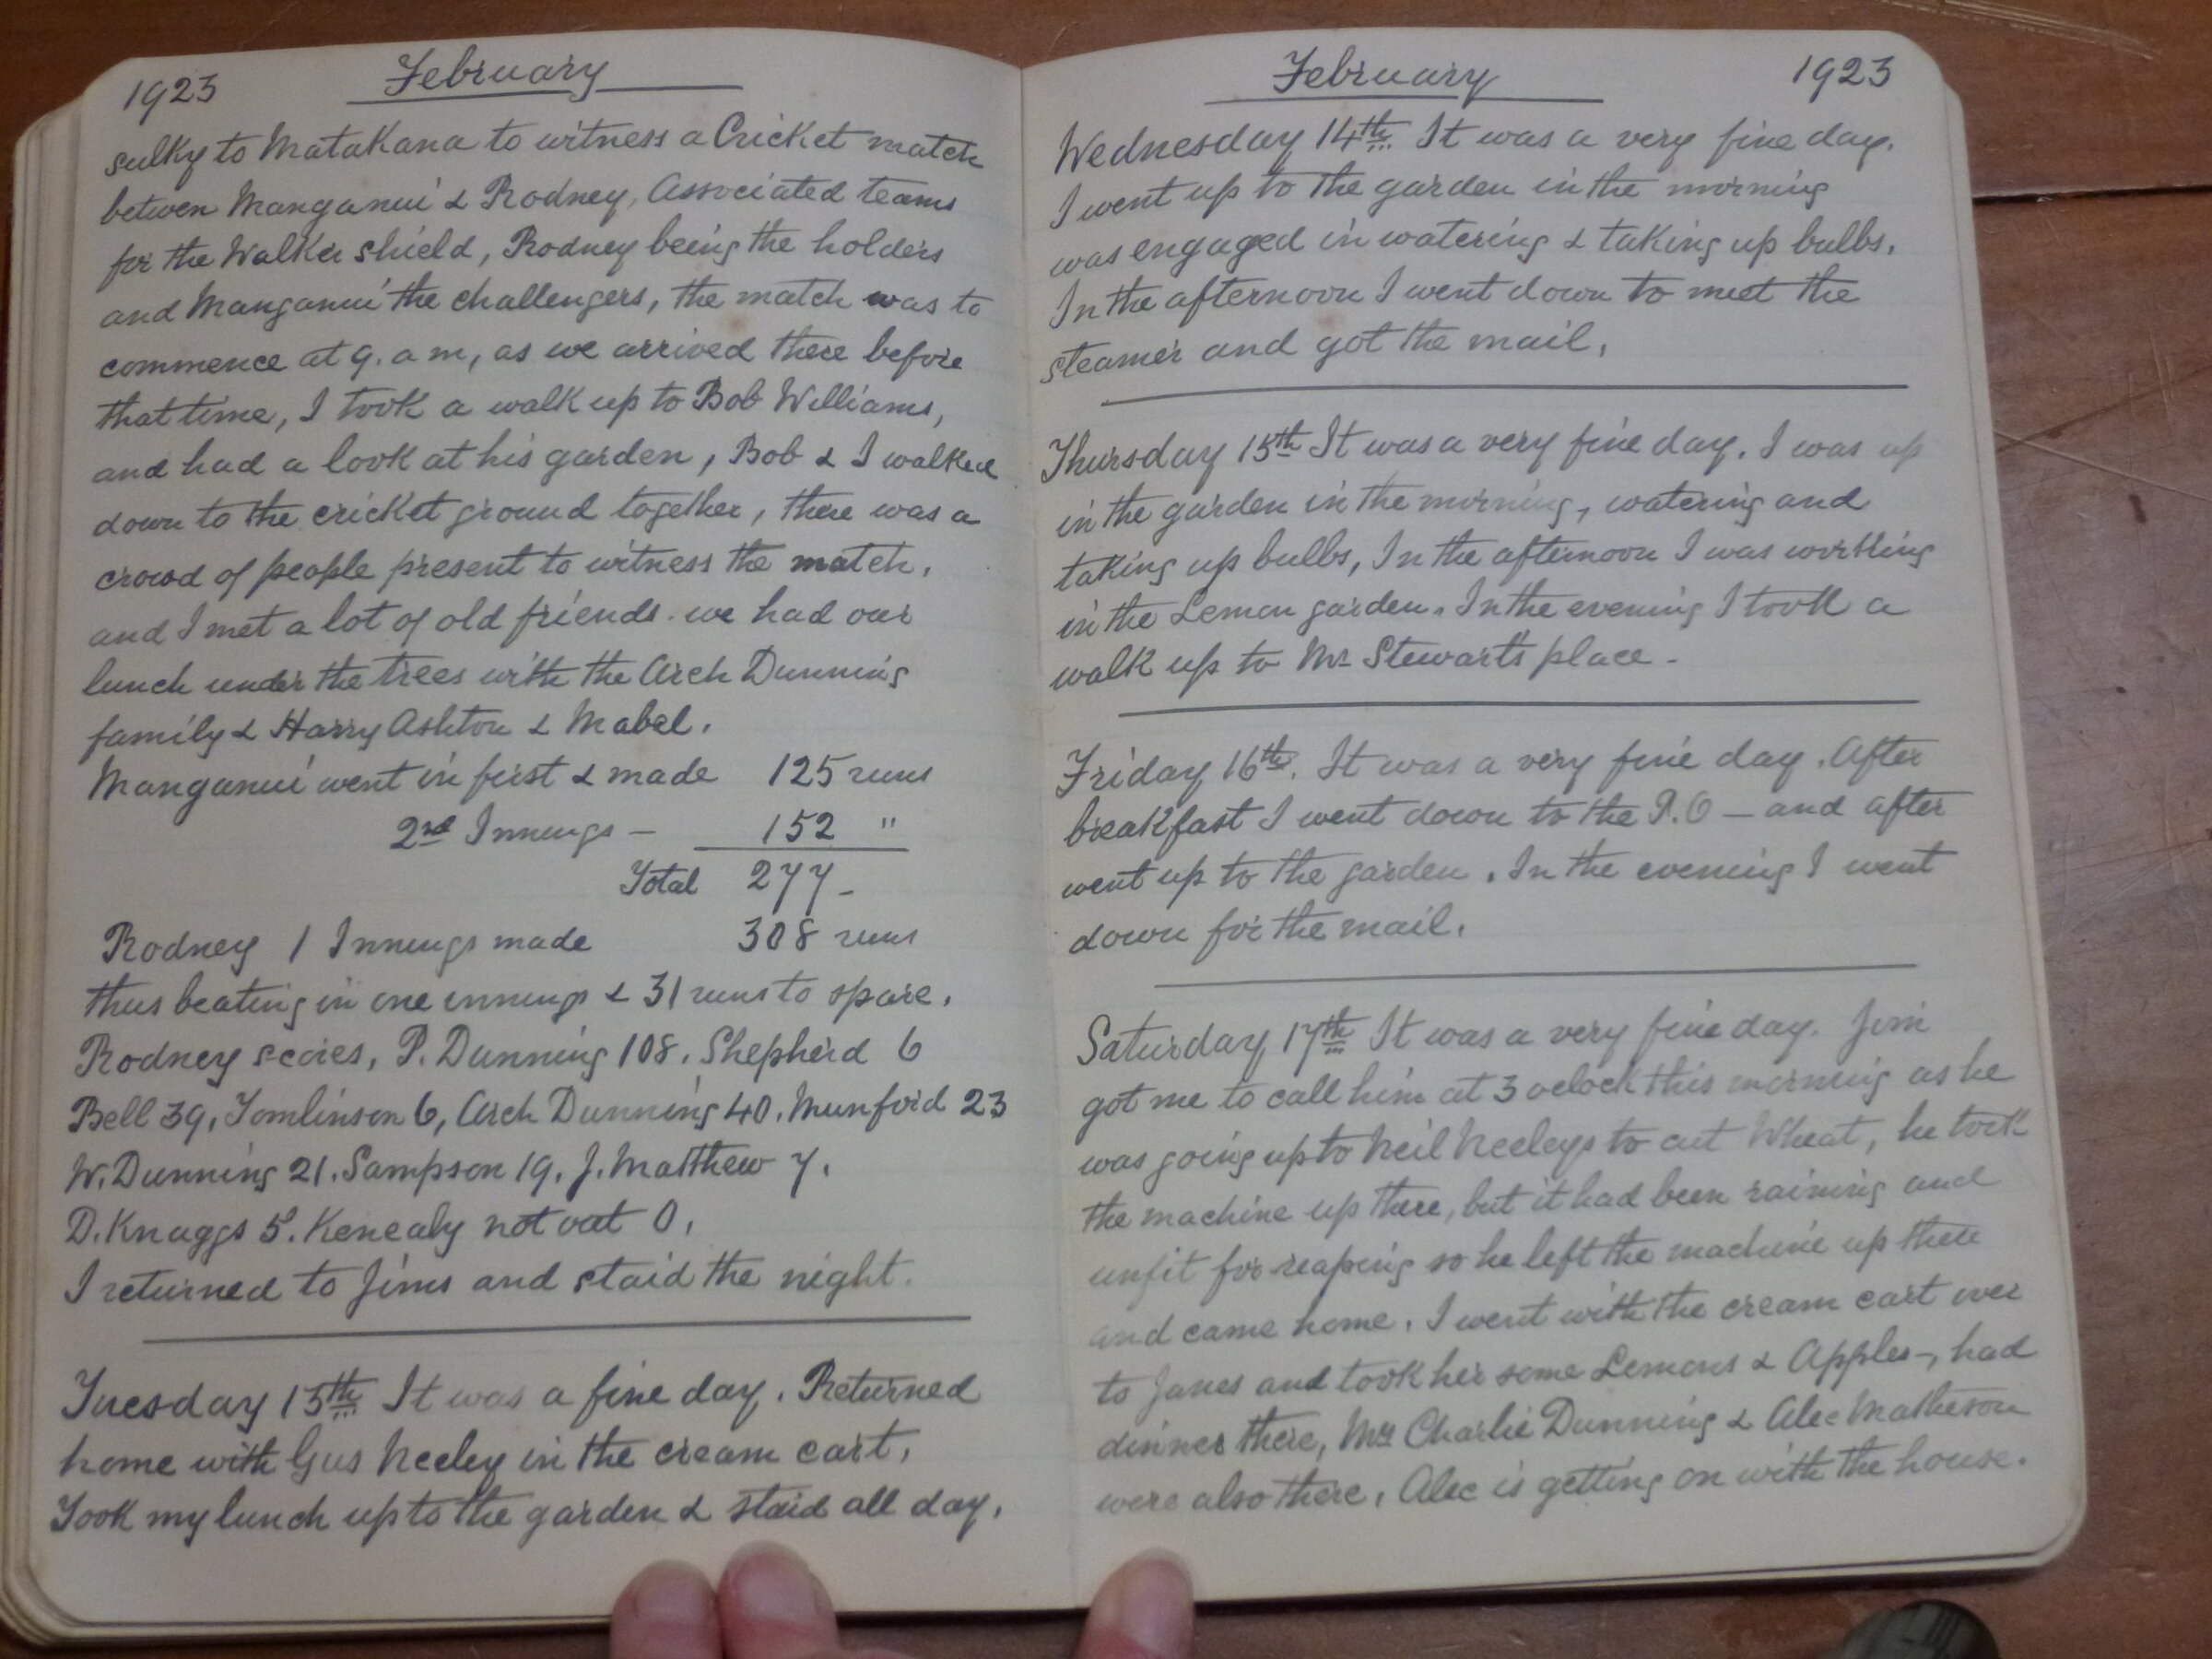 1923 February
sulky to Matakana to witness a Cricket match
betwen Manganui & Rodney, Associated teams
for the Walker shield, Rodney being the holders
and Manganui the challengers, the match was to
commence at 9. a m, as we arrived there before
that time, I took a walk up to Bob Williams,
and had a look at his garden, Bob & I walked
down to the cricket ground together, there was a
crowd of people present to witness the match.
and I met a lot of old friends. we had our
lunch under the trees with the Arch Dunning
family & Harry Ashton & Mabel.
Manganui went in first & made 125 runs
2nd Innings — 152 "
Total 277 -
Rodney 1 Innings made 308 runs
thus beating in one innings & 31 runs to spare.
Rodney scores, P. Dunning 108. Shepherd 6
Bell 39, Tomlinson 6, Arch Dunning 40. Munford 23
W. Dunning 21. Sampson 19. J. Matthew 7.
D. Knaggs 5. Kenealy not out 0.
I returned to Jims and staid the night.
Tuesday 13th It was a fine day. Returned
home with Gus Neeley in the cream cart.
Took my lunch up to the garden & staid all day.
February 1923
Wednesday 14th It was a very fine day.
I went up to the garden in the morning
was engaged in watering & taking up bulbs.
In the afternoon I went down to meet the
steamer and got the mail.
Thursday 15th It was a very fine day. I was up
in the garden in the morning, watering and
taking up bulbs, In the afternoon I was working
in the Lemon garden. In the evening I took a
walk up to Mr Stewarts place -
Friday 16th. It was a very fine day. After
breakfast I went down to the P.O — and after
went up to the garden. In the evening I went
down for the mail.
Saturday 17th It was a very fine day. Jim
got me to call him at 3 oclock this morning as he
was going up to Neil Neeleys to cut Wheat, he took
the machine up there, but it had been raining and
unfit for reaping so he left the machine up there
and came home. I went with the cream cart over
to Janes and took her some Lemons & Apples -, had
dinner there, Mrs Charlie Dunning & Alec Matheson
were also there. Alec is getting on with the house.